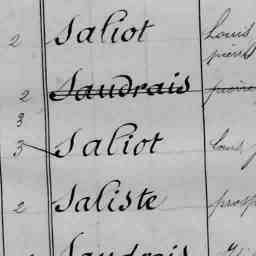 2 Saliot Louis
pierre
2 Saudrais pierre
3
3 Saliot Louis
2 Saliste prosp
Saudrais